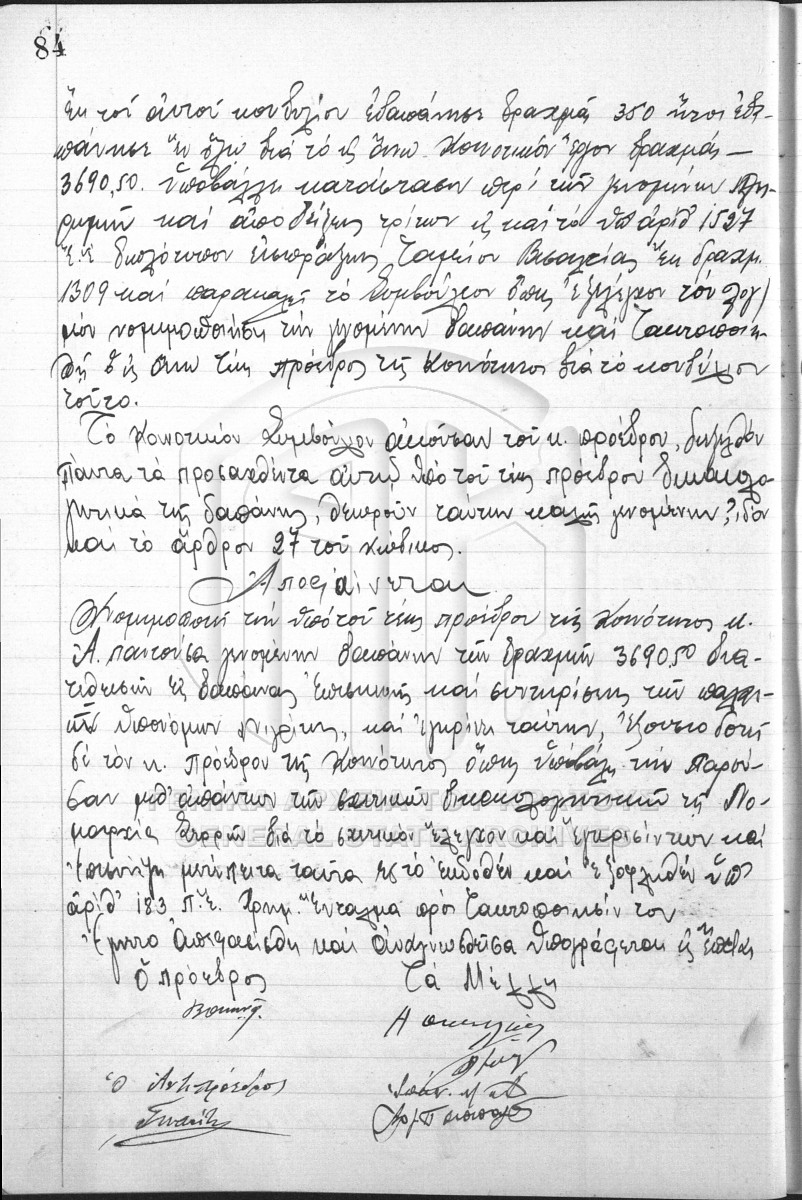 84
Ἐκ τοῦ αὐτοῦ κονδυλίου ἐδαπάνησε δραχμάς 350 ἤτοι ἐδα-
πάνησε ἐν ὅλῳ διά τό ὡς ἄνω Κοινοτικόν ἔργον δραχμάς —
3690,50. Ὑποβάλλει κατάστασιν περί τῶν γενομένων πλη-
ρωμῶν καί ἀποδείξεις τρίτων ὡς καί τό ὑπ' ἀριθ 1527
διπλότυπον εἰσπράξεως Ταμείου Βισαλτίας ἐκ δραχμ.
1309 καί παρακαλεῖ τό Συμβούλιον ὅπως ἐξελέγχον τόν λογ/
μόν νομιμοποιήσῃ τήν γενομένην δαπάνην καί τακτοποιη-
θῇ ὁ ὡς ἄνω τέως πρόεδρος τῆς Κοινότητος διά τό κονδύλιον
τοῦτο.
Τό Κοινοτικόν Συμβούλιον ἀκοῦσαν τοῦ κ. προέδρου, διεξελθόν
πάντα τά προσαχθέντα αὐτῷ ὑπό τοῦ τέως προέδρου δικαιολο-
γητικά τῆς δαπάνης, θεωροῦν ταύτην καλῶς γενομένην, ἰδόν
καί τό ἄρθρον 27 τοῦ κώδικος.
Ἀποφαίνεται
Νομιμοποιεῖ τήν ὑπό τοῦ τέως προέδρου τῆς Κοινότητος κ.
Α. παντούσα γενομένην δαπάνην τῶν δραχμῶν 3690,50 δια-
τεθεισῶν εἰς δαπάνας ἐπισκευῆς καί συντηρίσεως τῶν παλαι-
ῶν ὑπονόμων Νιγρίτης, καί ἐγκρίνει ταύτην, ἐξουσιοδοτεῖ
δέ τόν κ. πρόεδρον τῆς Κοινότητος ὅπως ὑποβάλῃ τήν παροῦ-
σαν μεθ' ἁπάντων τῶν σχετικῶν δικαιολογητικῶν τῇ Νο-
μαρχίᾳ Σερρῶν διά τό σχετικόν ἔλεγχον καί ἔγκρισίν των καί
ἐπισυνάψῃ μετέπειτα ταῦτα εἰς τό ἐκδοθέν καί ἐξοφληθέν ὑπ'
ἀριθ' 183 π. ἔ. Χρημ. Ἔνταλμα πρός τακτοποίησίν του
Ἐφ' ᾧ ἀπεφασίσθη καί ἀναγνωσθεῖσα ὑπογράφεται ὡς ἕπεται
Ὁ πρόεδρος Τά Μέλλη
Ὁ Ἀντιπρόεδρος
ΓΕΝΙΚΑ ΑΡΧΕΙΑ ΤΟΥ ΚΡΑΤΟΥΣ
GENERAL STATE ARCHIVES